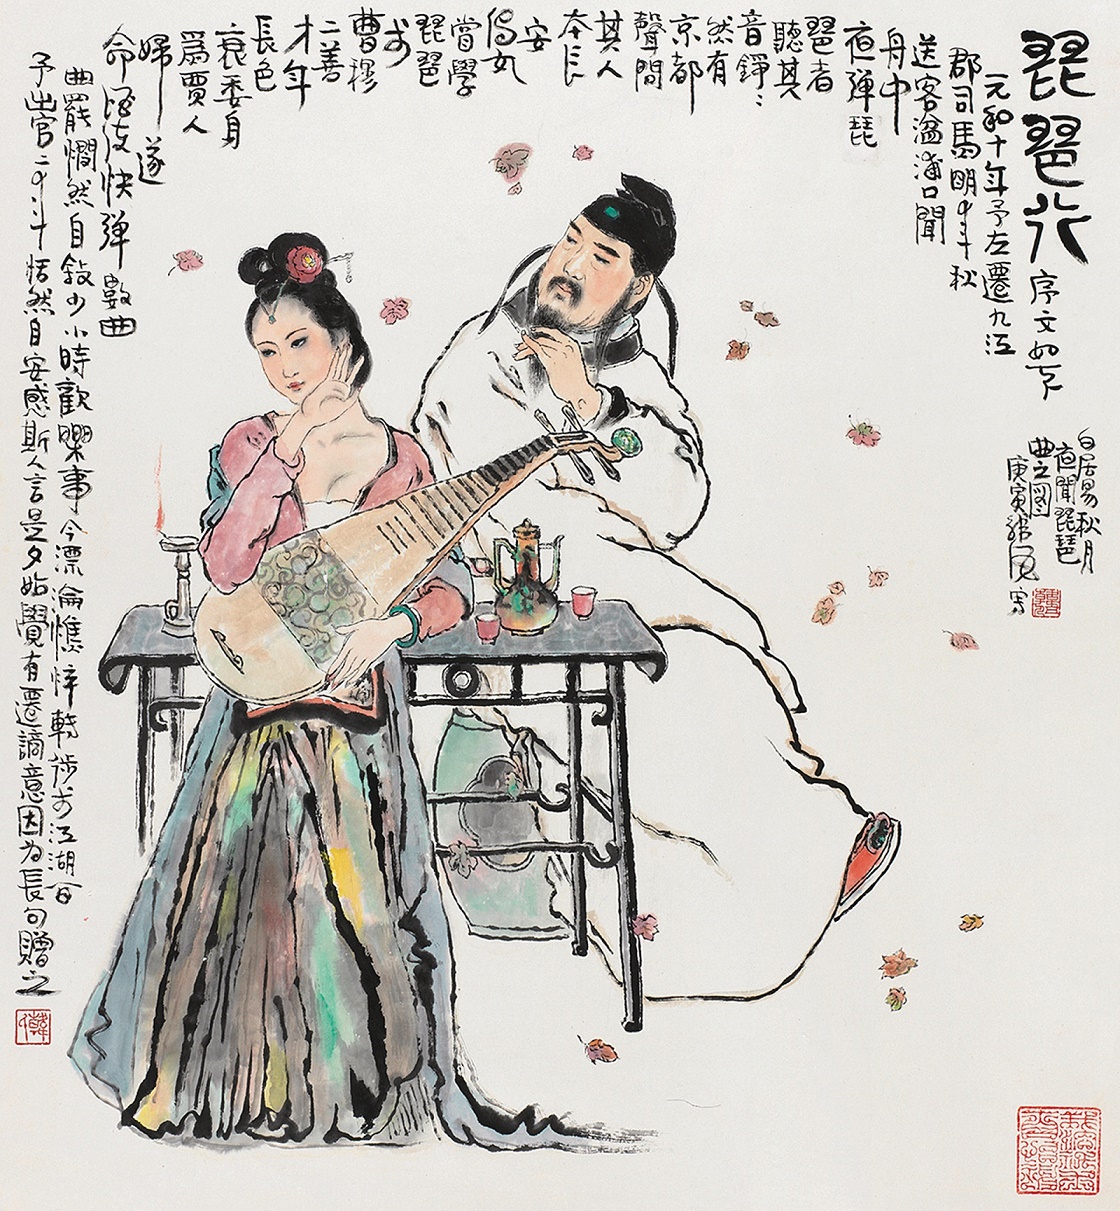 琵琶行 序文如下
元和十年予左遷九江
郡司馬明年秋
送客湓浦口聞
舟中
夜彈琵
琶者
聽其
音錚〻
然有
京都
聲問
其人
本長
安
倡女
嘗學
琵琶
於
曹穆
二善
才年
長色
衰委身
爲賈人
婦遂
命酒使快彈數曲
曲罷憫然自敍少小時歡樂事今漂淪憔悴轉徙於江湖
予出官二年恬然自安感斯人言是夕始覺有遷謫意因为長句贈之
白居易秋月
夜聞琵琶
曲之圖
庚寅寫